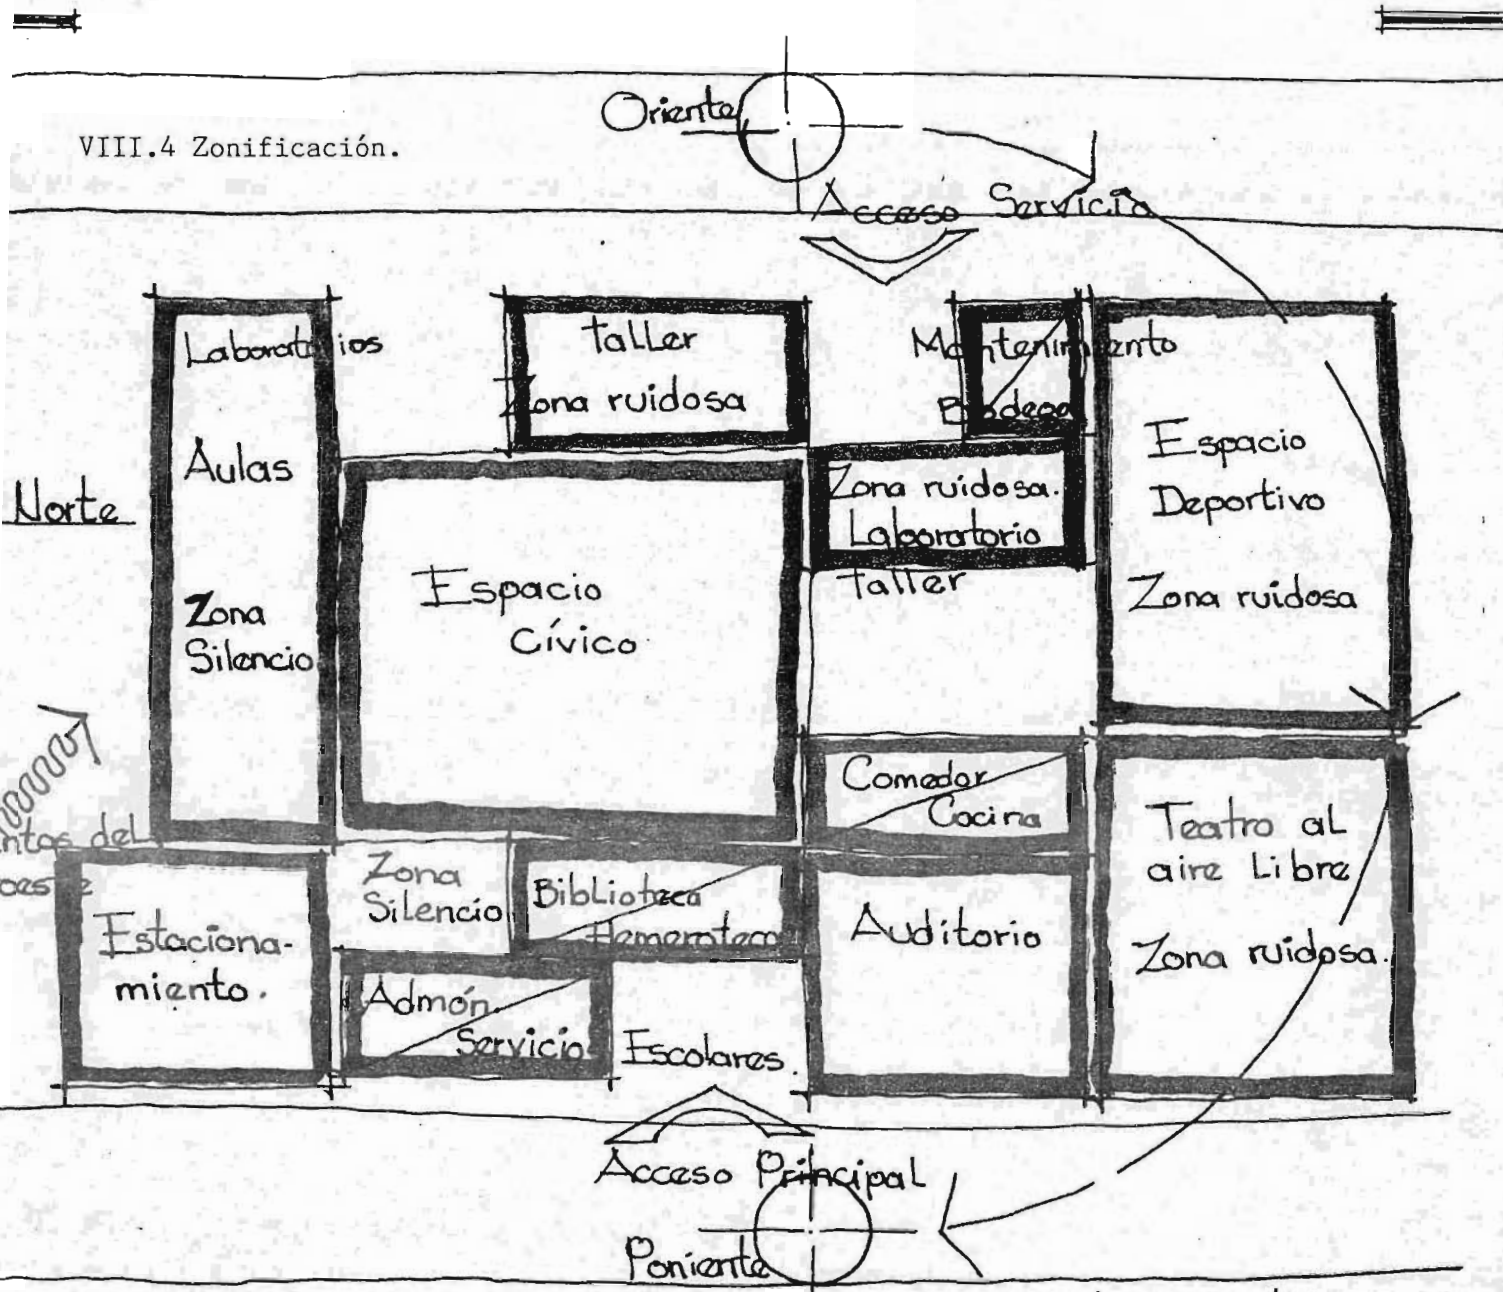 Oriente
VIII.4 Zonificación.
Acceso Servicio
Laboratorios
Aulas
Zona
Silencio
taller
Zona ruidosa
Mantenimiento
Bodega
Zona ruidosa.
Laboratorio
taller
Espacio
Deportivo
Zona ruidosa
Norte
Espacio
Cívico
Comedor
Cocina
Teatro al
aire Libre
Zona ruidosa.
del
Estaciona-
miento.
Zona
Silencio
Biblioteca
Hemeroteca
Auditorio
Admón.
Servicio
Escolares.
Acceso Principal
Poniente